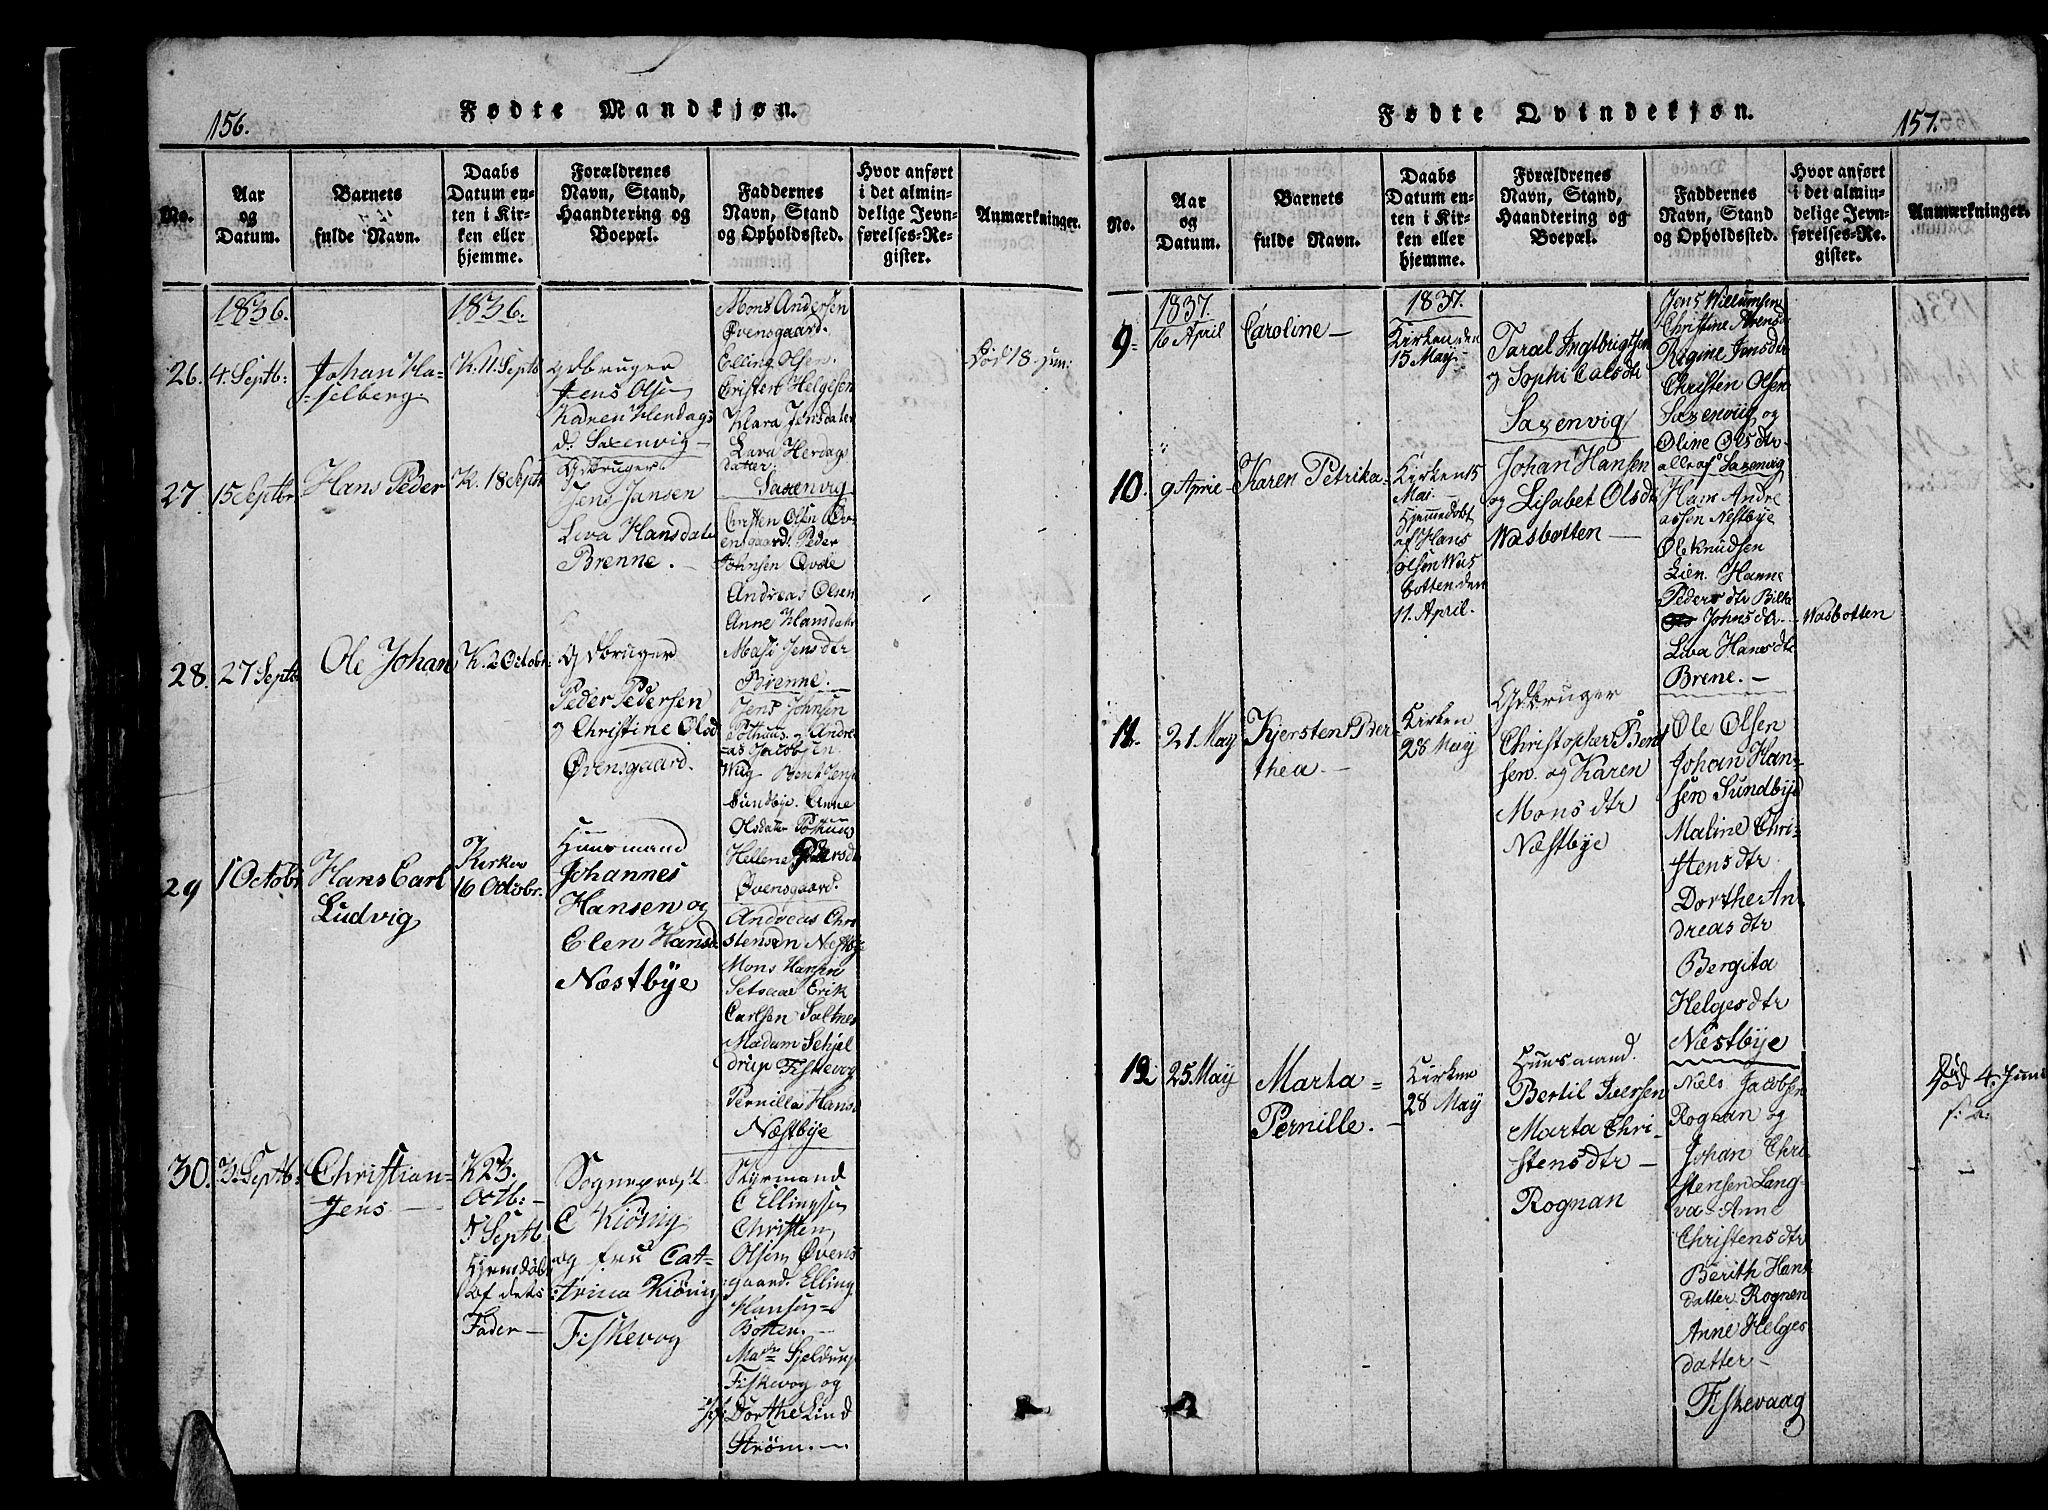 156.
Fødte Mandkjøn.
No.
Aar
og
Datum.
Barnets
fulde Navn.
Daabs
Datum en-
ten i Kir-
ken eller
hjemme.
Forældrenes
Navn, Stand,
Haandtering og
Boepæl.
Faddernes
Navn, Stand
og Opholdssted.
Hvor anført
i det almin-
delige Jevn-
førelses-Re-
gister.
Anmærkninger.
1836.
1836.
26.
4. Septb:
Johan Ha-
-selberg.
K. 11. Septb
Gdbruger
Jens Olsen
Karen Hendags
d. Saxenvig —
Mons Andersen
Øvensgaard.
Elling Olsen.
Cristen Helgesen
Klara Jensdater
Lava Herdags
dater.
Saxenvig
Død 18. Jun:
27.
15 Septbr
Hans Peder
K. 18 Septb
Gdbruger.
Jens Jansen
Liva Hansdater
Brenne. —
Cristen Olsen Øv-
ensgaard. Peder
Johnsen Qvale
Andreas Olsen
Anne Hansdatr
Masi Jensdtr
Brenne.
28.
27 Septb
Ole Johan
K. 2 Octobr.
Gdbruger
Peder Pedersen
og Christine Olsd
Øvensgaard.
Jens Johnsen
Pothuus. og Andre
-as Jacobsen
Wug Bent Jense
Sundbye. Anne
Olsdatter Pothuus
Hellene Pedersdt
Øvensgaard.
29
1 Octobr
Hans Carl
Ludvig
Kirken
16 Octobr.
Huusmand
Johannes
Hansen og
Elen Hansd.
Næstbye
Andreas Chri
stensen Næstby
Mons Hansen
Setsaae Erik
Carlsen Saltnes
Madam Schjel
drup Fiskevog
Pernilla Hansd
Næstbye
30.
3. Septb.
Christian-
Jens —
K 23.
Octb: —
5 Septb.
Hjemdøbt
af dets
Fader —
Sogneprest
C Kiönig
og fru Cat-
trina Kiönig
Fiskevog
Styrmand
C Ellingsen
Christen
Olsen Øvens
gaard. Elling
Hansen —
Botten. —
Madm Sjeldrup
Fiskevog og
Dorthe Lind
Strøm. —
Fødte Qvindekjøn.
157.
No.
Aar
og
Datum.
Barnets
fulde Navn.
Daabs
Datum en-
ten i Kir-
ken eller
hjemme.
Forældrenes
Navn, Stand,
Haandtering og
Boepæl.
Faddernes
Navn, Stand
og Opholdssted.
Hvor anført
i det almin-
delige Jevn-
førelses-Re-
gister.
Anmærkninger.
1837.
1837.
9
16 April
Caroline —
Kirken den
15 May —
Taral Ingebrigtsen
og Sophi Calsdtr
Saxenvig
Jens Willumsen
Christine Arensd
Regine Jensdtr
Christen Olsen
Saxenviig og
Oline Olsdtr
alle af Saxenvig
10.
9 April
Karen Petrika
Kirken 15
Mai.
Hjemmedøbt
af Hans
Olsen Was
botten den
11. April.
Johan Hansen
og Lisabet Olsdtr
Wasbotten —
Hans Andre
assen Nestbye
Ole Knudsen
Lien. Hanne
Peders dtr
Johnsdtr. — Wasbotten
Liva Hansdtr
Brene. —
11.
21 May
Kjersten Ber-
thea. —
Kirken
28 May
Gdbruger
Christopher Bent
sen. og Karen
Mons dtr
Næstbye
Ole Olsen
Johan Han-
sen Sundbye
Maline Chri-
stens dtr
Dorthe An
dreas dtr
Bergita
Helges dtr
Næstbye
12
25. May
Marta
Pernille. —
Kirken
28 May
Huusmand.
Bertil Iversen
Marta Chri-
stens dtr —
Rognan
Niels Jacobsen
Rognan og
Johan Chri
stensen Lang
va- Anne
Christens dtr
Berith Hans
datter Rognen
Anne Helges
datter —
Fiskevaag
Død 4. Juni
s: a: